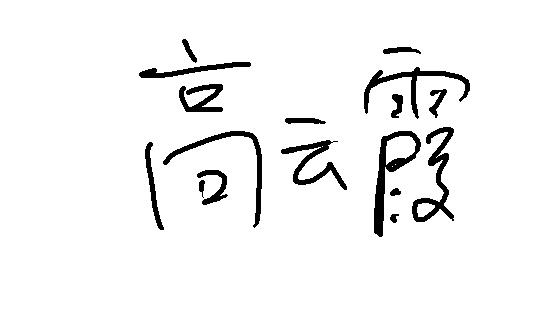 高云霞